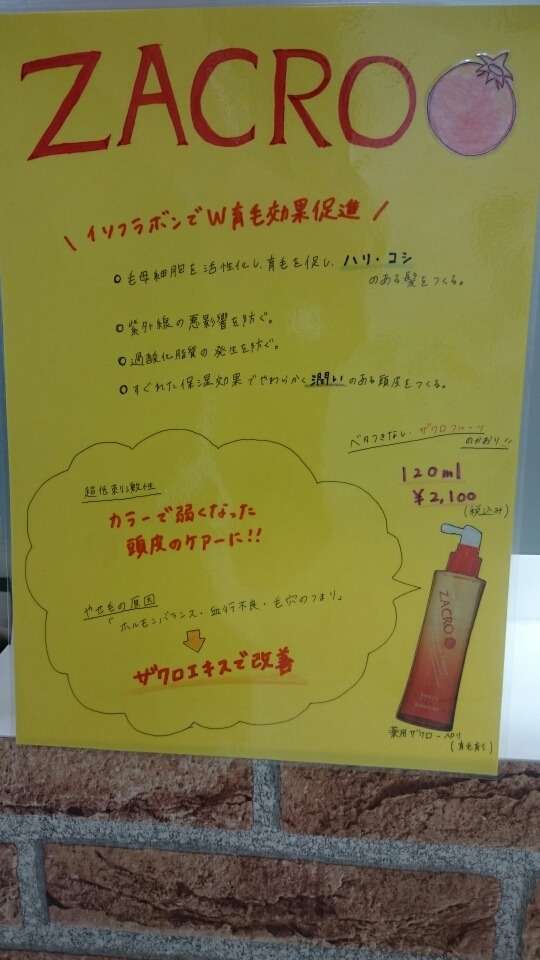 ZACRO
\ イソフラボンでW育毛効果促進 /
○ 毛母細胞を活性化し、育毛を促し、ハリ・コシ
のある髪をつくる。
○ 紫外線の悪影響を防ぐ。
○ 過酸化脂質の発生を防ぐ。
○ すぐれた保湿効果でやわらかく潤いのある頭皮をつくる。
ベタつきなし、ザクロフルーツ
のかおり!!
120ml
¥2,100
(税込み)
超低刺激性
カラーで弱くなった
頭皮のケアーに!!
やせ毛の原因
「ホルモンバランス・血行不良・毛穴のつまり」
ザクロエキスで改善
ZACRO
薬用ザクローペリ
(育毛剤)